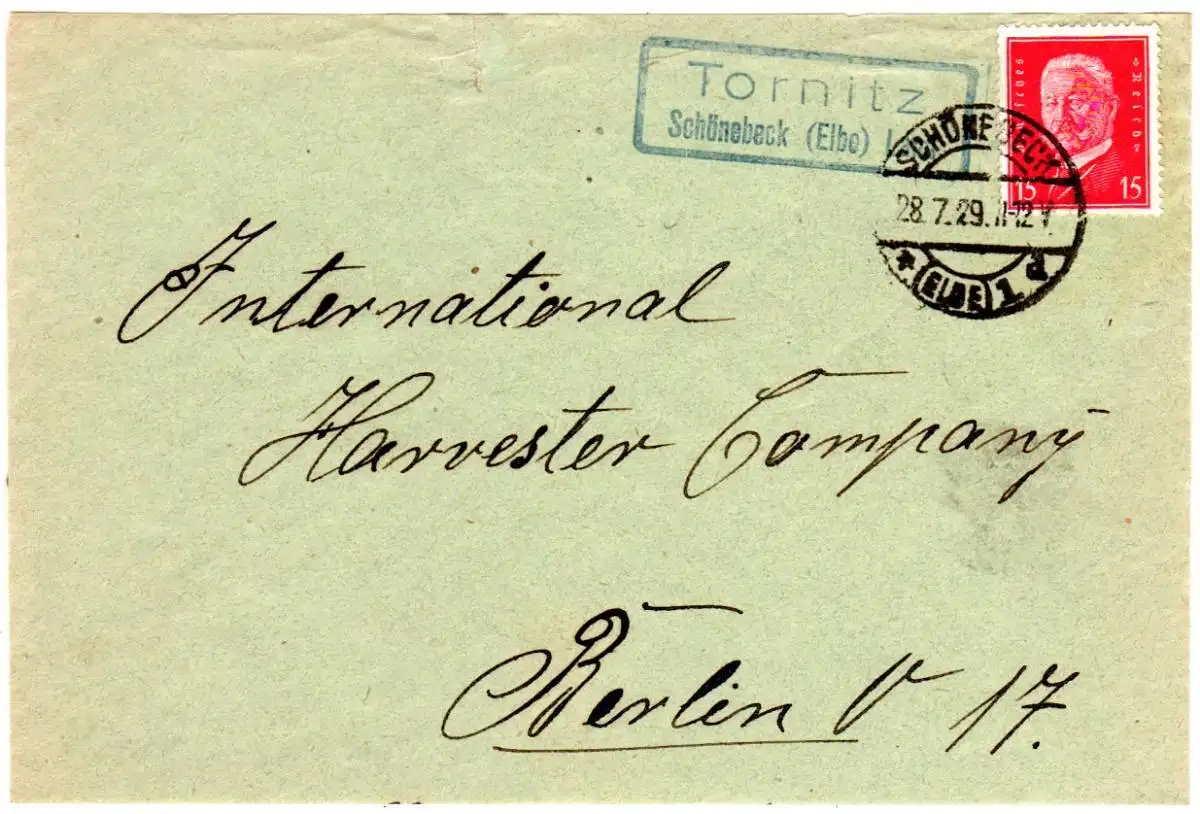 Tornitz
Schönebeck (Elbe)
Reich
15 15
SCHÖNEBECK
28.7.29.11-12 V
* (ELBE) 1 d
International
Harvester Company
Berlin O 17.